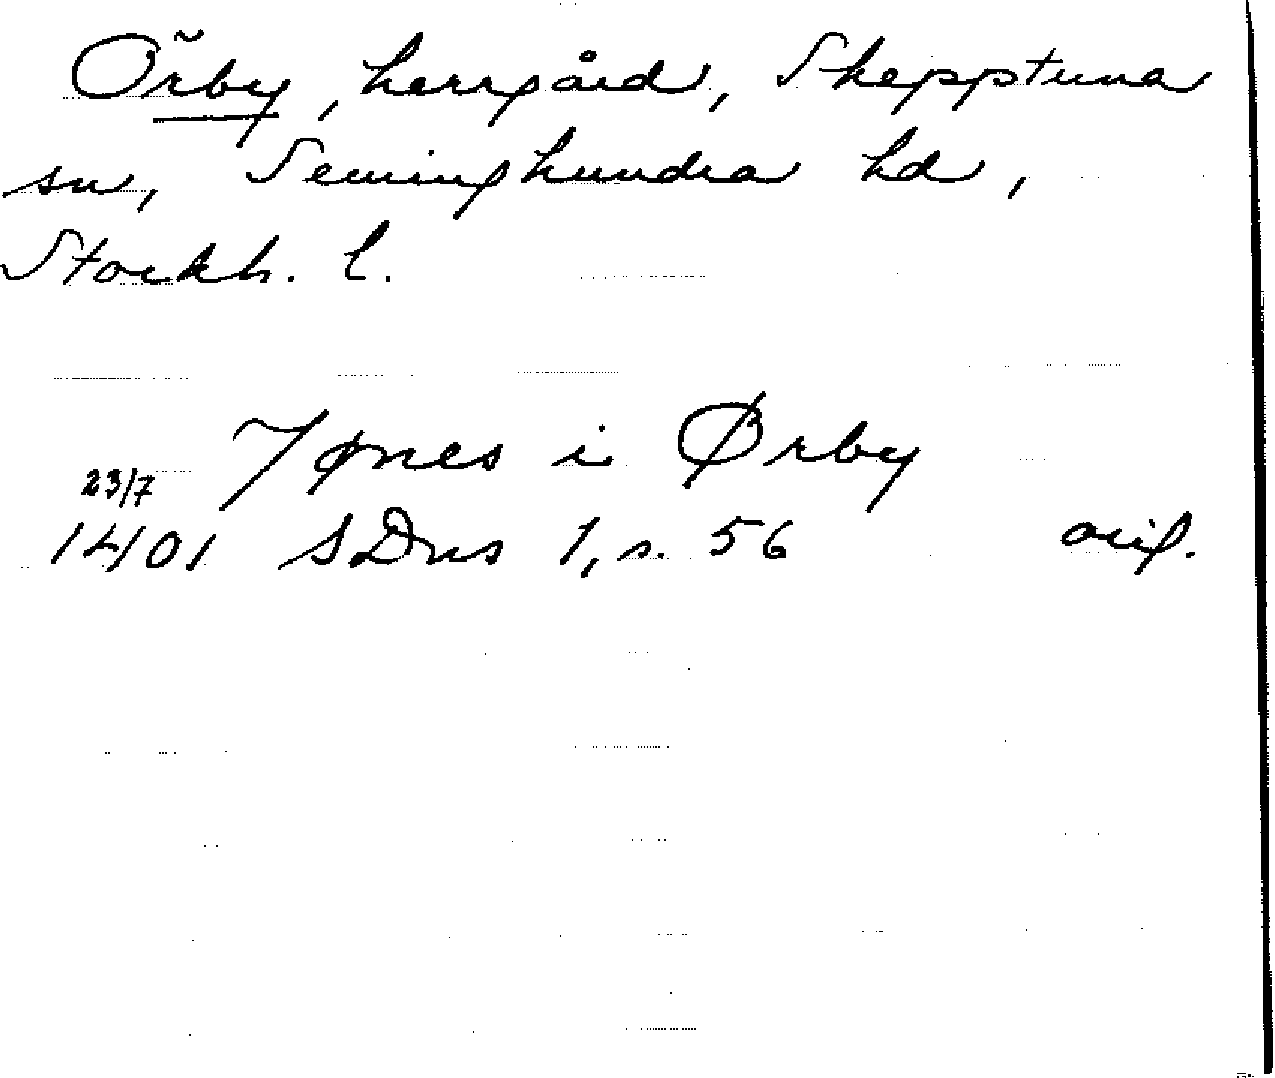 Örby, herrgård, Skepptuna
sn, Seminghundra hd,
Stockh. l.
Jønes i Ørby
23/7
1401 SDns 1, s. 56 orig.